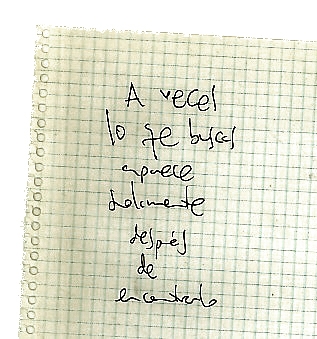 A veces
lo qe buscas
aparece
solamente
después
de
encontrarlo